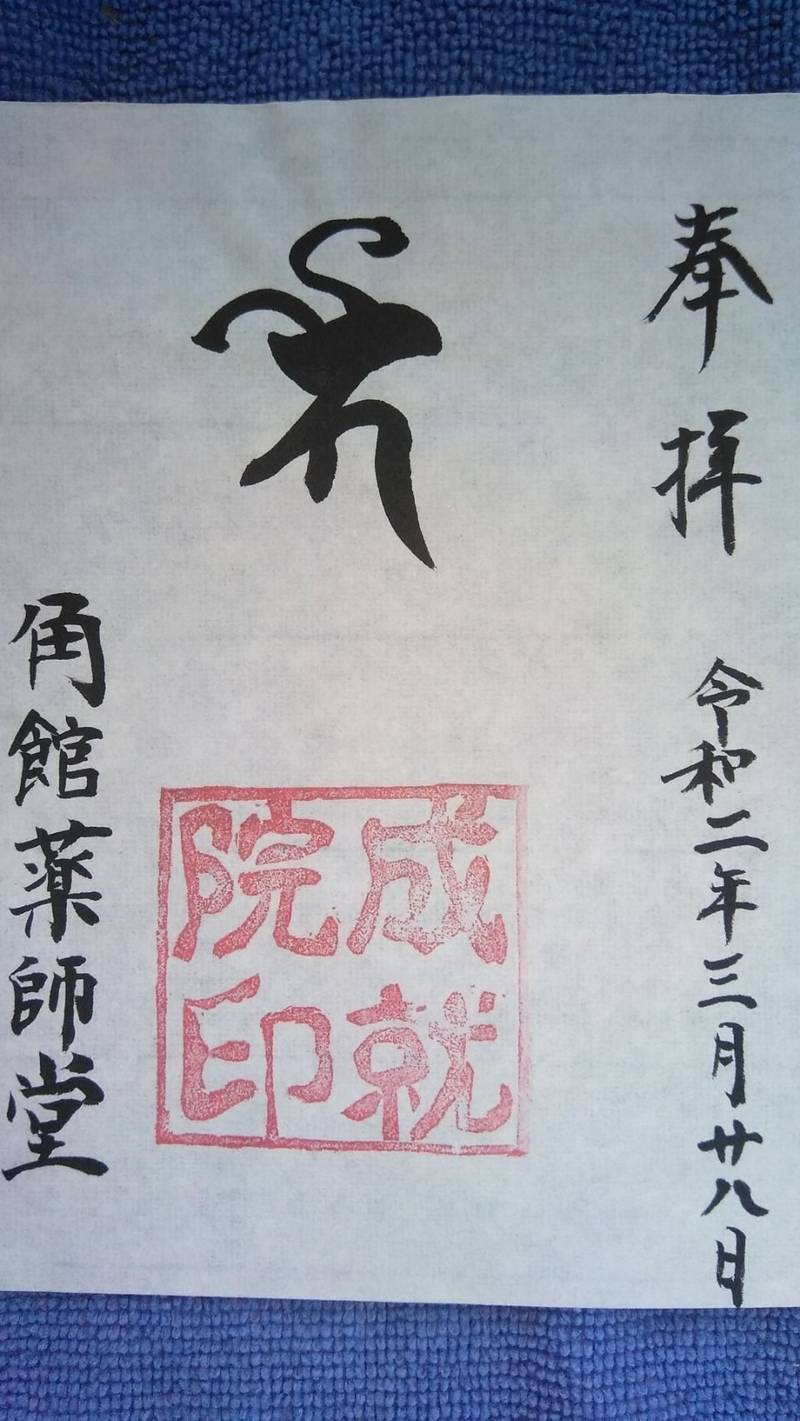 奉拝
令和二年三月廿八日
成就
院印
角館薬師堂